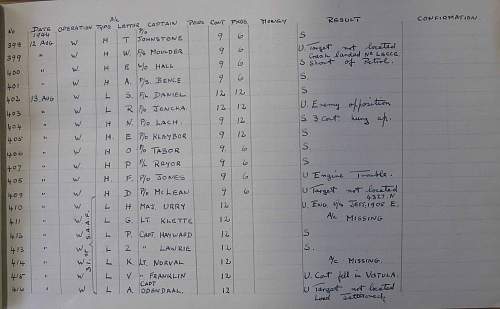 No DATE OPERATION A/c TYPE LETTER CAPTAIN PERS CONT PKGS MONEY RESULT CONFIRMATION
1944
398 12 AUG W H T P/O JOHNSTONE 9 6 S
399 " W H W. F/S MOULDER 9 6 U Target not located
Crash landed Nr LECCE
400 " W H B W/O HALL 9 6 S Short of Petrol.
401 " W H A. F/S. BENCE 9 6 S
402 13 AUG W L S. F/L DANIEL 12 12 S
403 " W L R F/O JENCKA. 12 12 U Enemy opposition
404 " W H N. F/O LACH. 9 12 S 3 Cont hung up.
405 " W H E F/O KLAYBOR 9 12 S
406 " W H O F/O TABOR 9 6 S
407 " W H P F/L RAYOR 9 6 S
408 " W H. F. F/O JONES 9 6 U Engine Trouble.
409 " W H D F/O McLEAN 9 6 U Target not located
410 " W L H MAJ. URRY 12 U. ENG. JETT. 1908 E.
411 " W L G. LT KLETTE 12 A/c MISSING
412 " W L P. CAPT. HAYWARD 12 S
413 " W L Z " LAWRIE 12 S.
414 " W L K LT. NORVAL 12 A/c MISSING.
415 " W L V " FRANKLIN 12 U. Cont fell in VISTULA.
416 " W L A. CAPT ODENDAAL. 12 U Target not located
Load Jettisoned.
31 Sq. S.A.A.F.